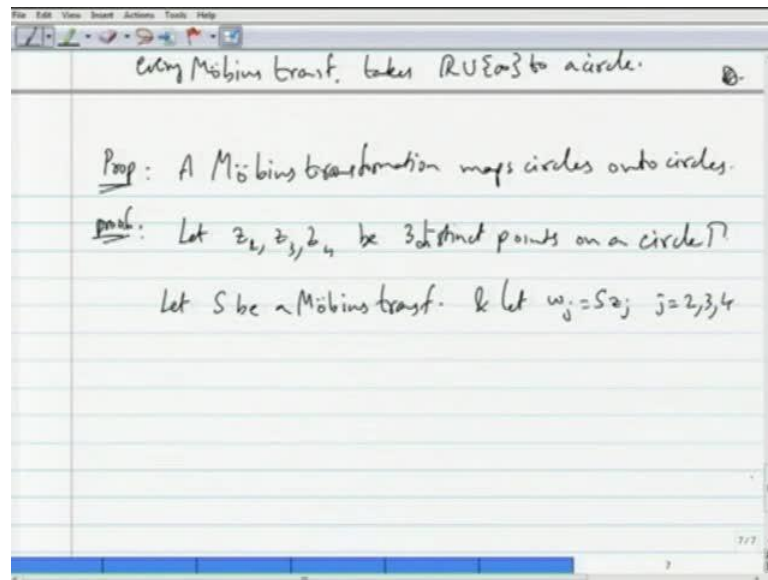 File Edit View Insert Actions Tools Help
every Möbius transf. takes ℝ∪{∞} to a circle.
Prop: A Möbius transformation maps circles onto circles.
proof: Let z₂, z₃, z₄ be 3 distinct points on a circle Γ.
Let S be a Möbius transf. & let wⱼ = Szⱼ j=2,3,4
7/7
7